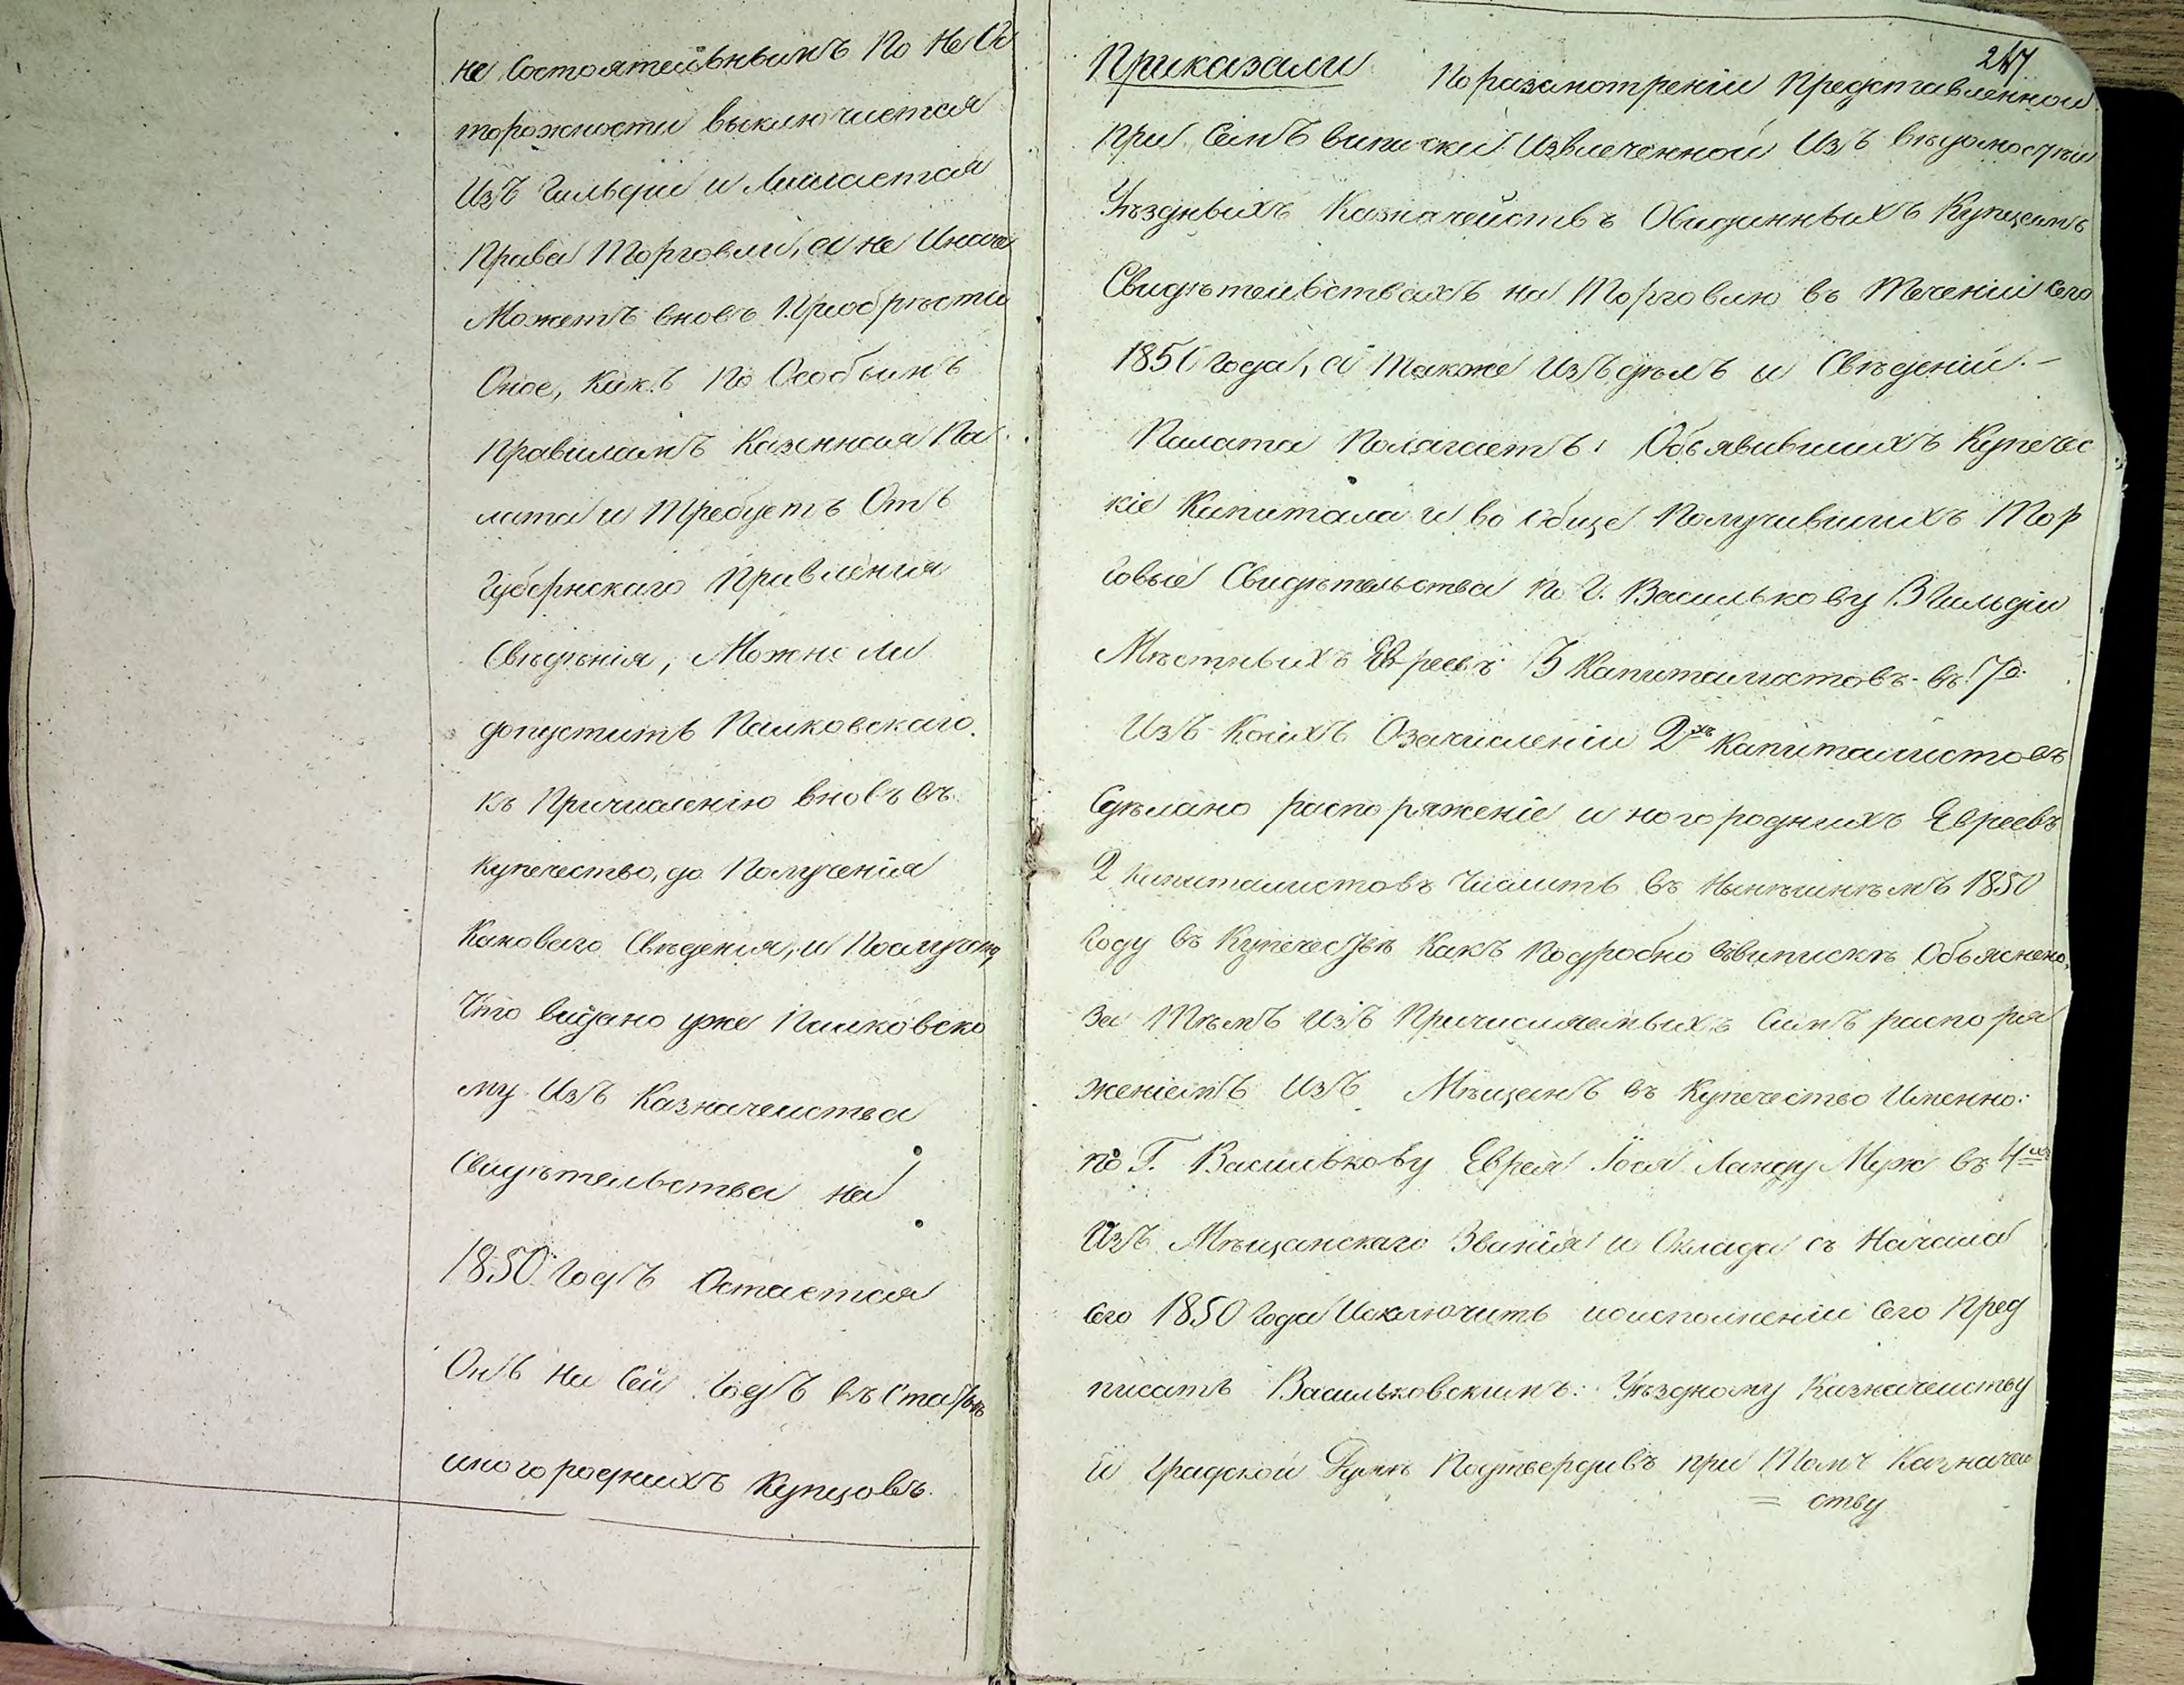 не состоятельнымъ по не ос
торожности выключается
изъ Гильдіи и лишается
права торговли, а не иначе
можетъ вновь приобрѣсти
оное, какъ по особымъ
правиламъ Казенная Па
лата и требуетъ отъ
Губернскаго Правленія
Свѣдѣнія, можно ли
допустить Палковскаго
къ причисленію вновь въ
купечество, до полученія
каковаго Свѣденія, и поелику
что видано уже Палковско
му изъ Казначейства
свидѣтельства на
1850 годъ остается
онъ на сей годъ въ статьѣ
иногородныхъ купцовъ.
247
Приказали По разсмотреніи представленной
при семъ виписки извлеченной изъ вѣдомостей
Уѣздныхъ Казначействъ о виданныхъ купцамъ
Свидѣтельствахъ на торговлю въ теченіи сего
1850 года, а также изъ дѣлъ и Свѣденій.—
Палата полагаетъ: Объявившихъ купечес
кіе капитала и во обще получившихъ Тор
говые Свидѣтельства по г. Василькову 3 Гильдіи
Мѣстныхъ Евреевъ 3 капиталистовъ въ 17 д.
Изъ коихъ о зачисленіи 2хъ капиталистовъ
Сдѣлано распоряженіе иногородныхъ Евреевъ
2 капиталистовъ числить въ нынѣшнѣмъ 1850
году въ купечествѣ какъ подробно въ випискѣ объяснено,
за тѣмъ изъ причисляемыхъ симъ распоря
женіемъ изъ Мѣщанъ въ купечество именно:
по Г. Василькову Еврея Іося Ланду муж въ 4хъ
изъ Мѣщанскаго званія и оклада съ начала
сего 1850 года исключить и о исполненіи сего пред
писать Васильковскимъ: Уѣздному Казначейству
и Градской Думѣ подтвердивъ при томъ Казначей
= ству